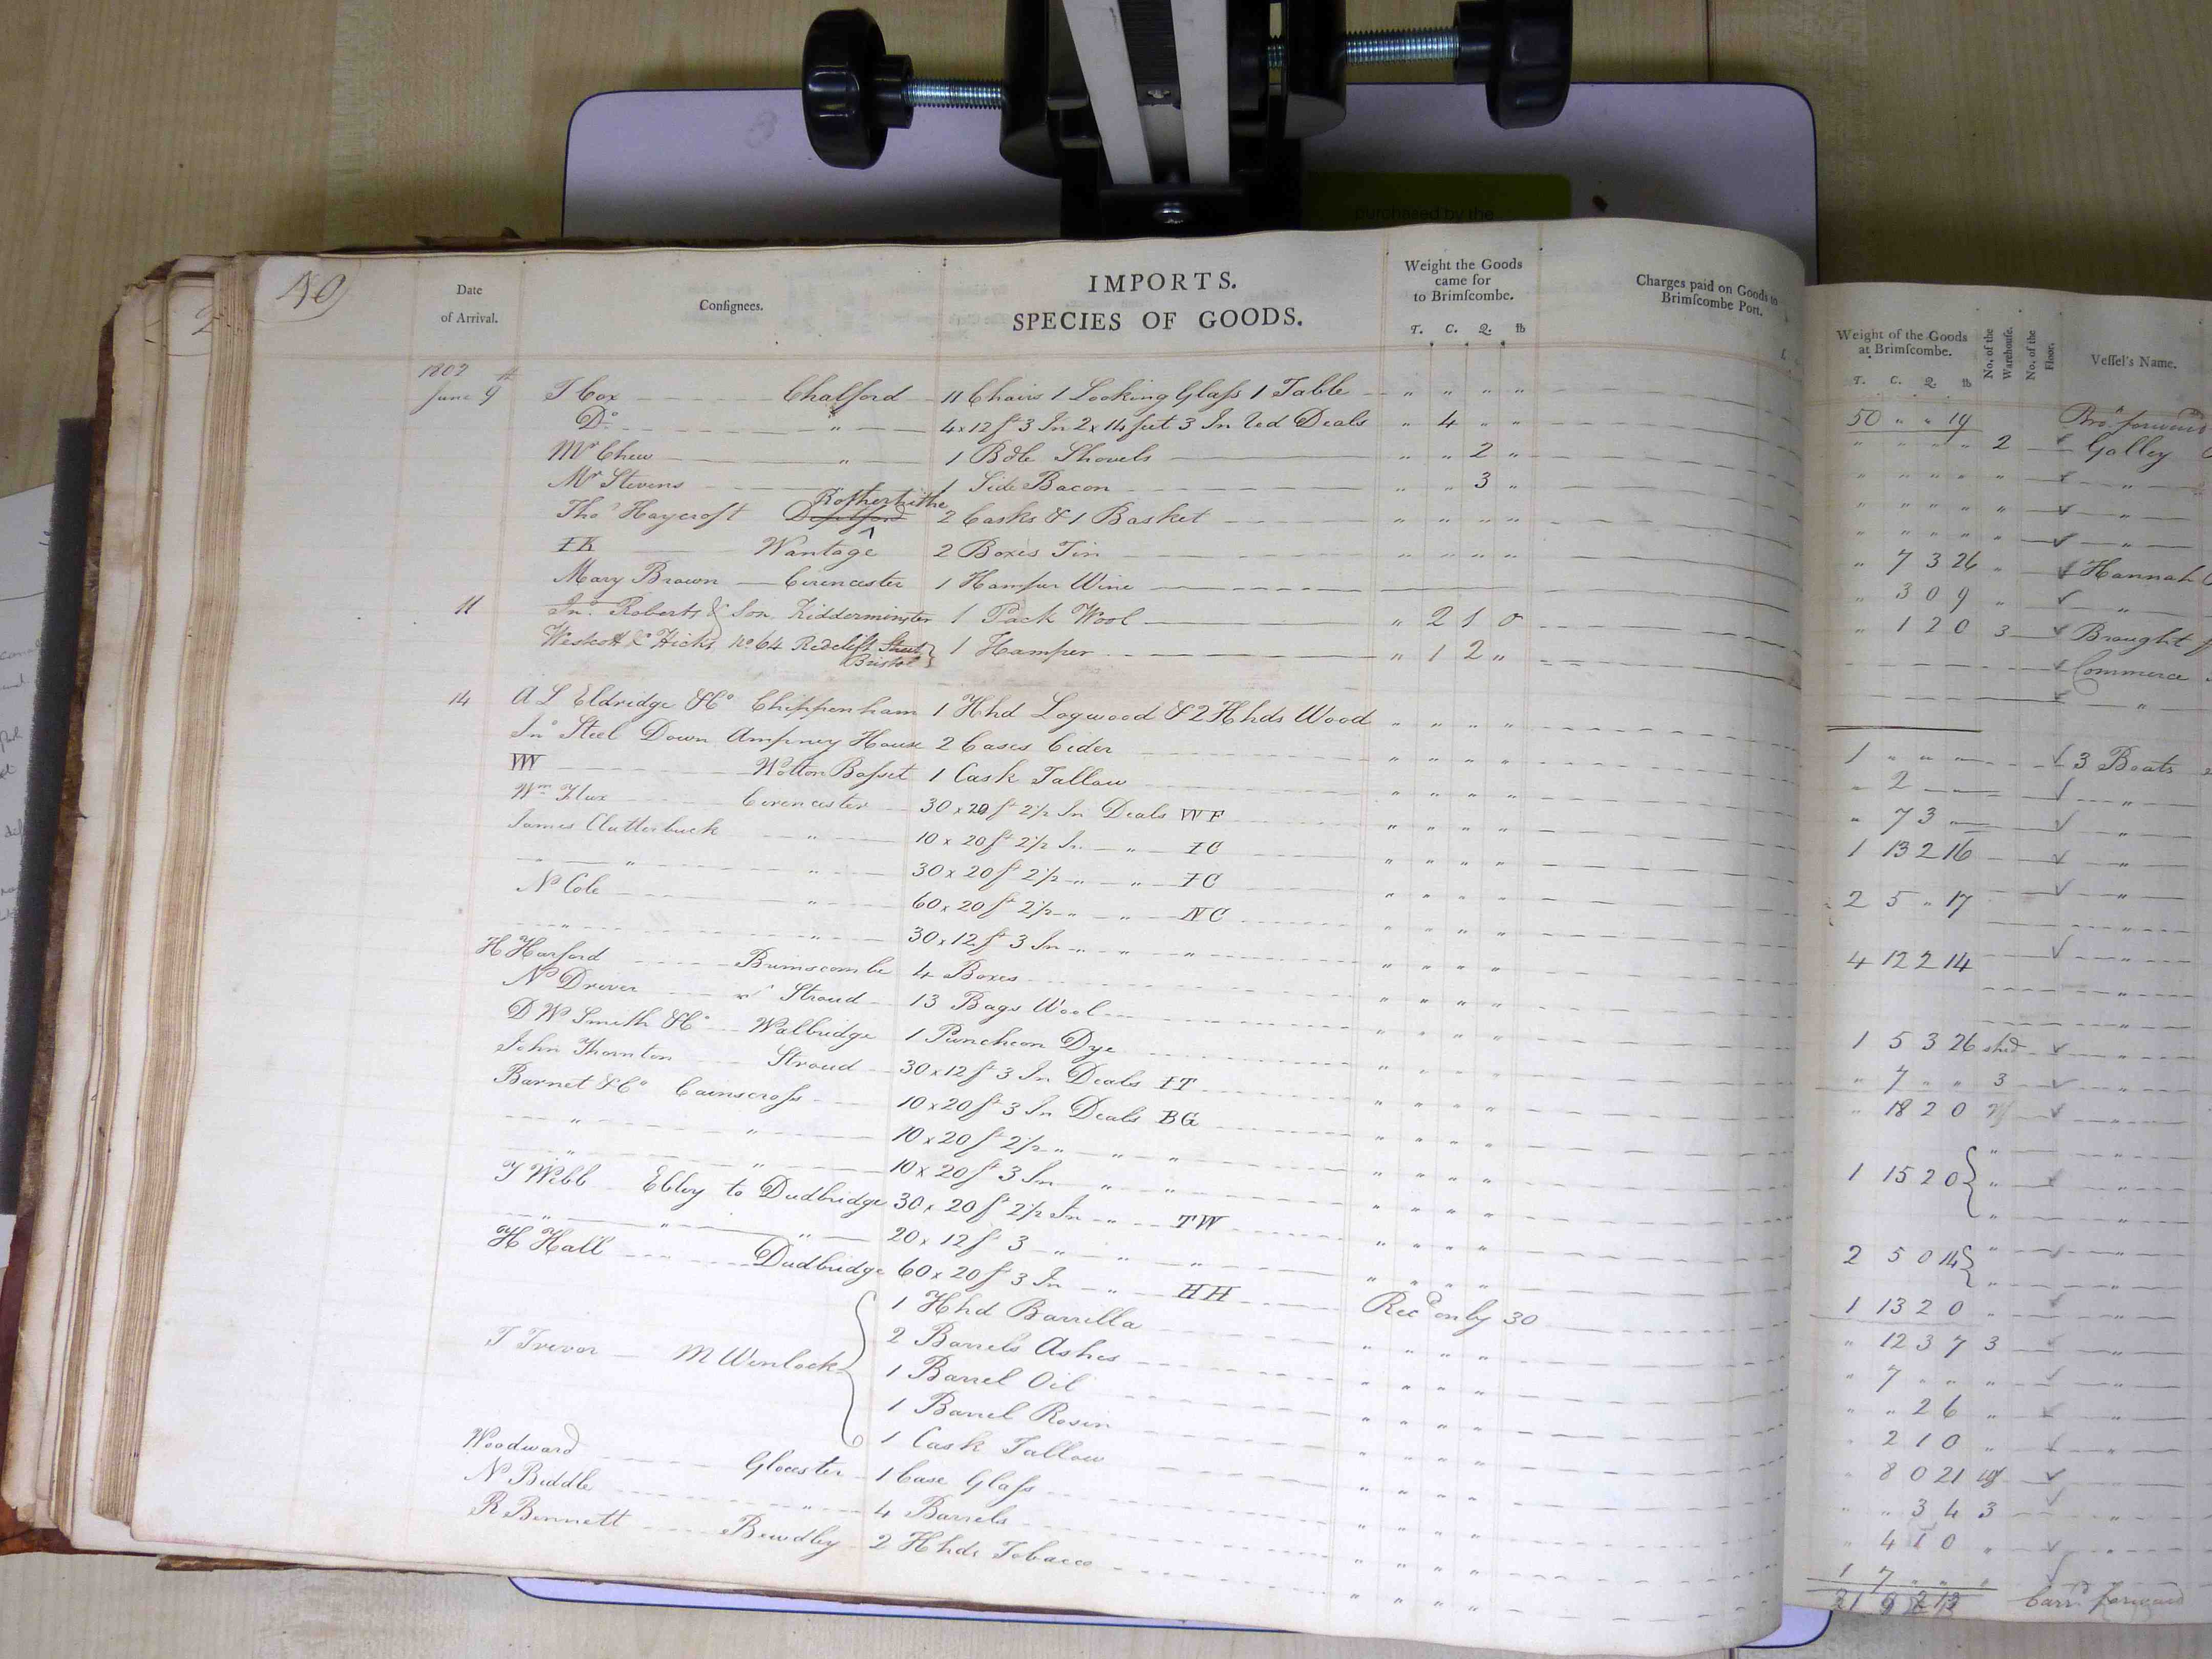 40
Date of Arrival.
Consignees.
IMPORTS.
SPECIES OF GOODS.
Weight the Goods came for to Brimſcombe.
T. C. Q. lb
Charges paid on Goods to Brimſcombe Port.
1802
June 9th T Cox Chalford 11 Chairs 1 Looking Glaſs 1 Table " " " "
Do " 4 x 12 ft 3 In 2 x 14 feet 3 In Deals " 4 " "
Mr Chew " 1 Bdle Shovels " " 2 "
Mr Stevens 1 Side Bacon " " 3 "
Thos Haycroft Rotherhithe 2 Casks & 1 Basket " " " "
IK Wantage 2 Boxes Tin " " " "
Mary Brown Cirencester 1 Hamper Wine
11 Jno Roberts & Son Kidderminster 1 Pack Wool " 2 1 0
Westcott & Hicks No 64 Redclift Street Bristol 1 Hamper " 1 2 "
14 A L Eldridge & Co Chippenham 1 Hhd Logwood & 2 Hhds Wood " " " "
Jno Steel Down Ampney House 2 Cases Cider " " " "
W Wotton Baſset 1 Cask Tallow " " " "
Wm Flux Cirencester 30 x 20 ft 2½ In Deals WF " " " "
James Clutterbuck " 10 x 20 ft 2½ In " IC " " " "
" " 30 x 20 ft 2½ " " IC " " " "
N Cole " 60 x 20 ft 2½ " " NC " " " "
" " 30 x 12 ft 3 In " " " " " " "
H Harford Brimscombe 4 Boxes " " " "
N Driver Stroud 13 Bags Wool " " " "
D W Smith & Co Walbridge 1 Puncheon Dye " " " "
John Thornton Stroud 30 x 12 ft 3 In Deals IT " " " "
Barnet & Co Cainscroſs 10 x 20 ft 3 In Deals BG " " " "
" " 10 x 20 ft 2½ " " " " " " "
" " 10 x 20 ft 3 In " " " " " "
T Webb Ebley to Dudbridge 30 x 20 ft 2½ In " TW " " " "
" " " 20 x 12 ft 3 " " " " " " "
H Hall Dudbridge 60 x 20 ft 3 In " HH Recd only 30
1 Hhd Barrilla " " " "
2 Barrels Ashes " " " "
T Trevor M Wenlock 1 Barrel Oil " " " "
1 Barrel Rosin " " " "
1 Cask Tallow " " " "
Woodward Glocester 1 Case Glaſs " " " "
N Biddle " 4 Barrels " " " "
R Bennett Bewdley 2 Hhds Tobacco " " " "
Weight of the Goods at Brimſcombe.
T. C. Q. lb
No. of the Warehouſe.
No. of the Floor.
Veſſel's Name.
50 " " 19 Bro. forward
" " " " 2 Galley
" " " " "
" " " " " "
" " " " " "
" 7 3 26 " Hannah
" 3 0 9 " "
" 1 2 0 3 Brought
Commerce
"
1 " " " 3 Boats
" 2 "
" 7 3 "
1 13 2 16 "
"
2 5 " 17 "
"
4 12 2 14 "
"
"
1 5 3 26 shed "
" 7 " " 3 "
" 18 2 0 "
"
1 15 2 0 " "
"
"
2 5 0 14 "
1 13 2 0 " "
" 12 3 7 3 "
" 7 " " " "
" " 2 6 " "
" 2 1 0 " "
" 8 0 21 "
" " 3 4 3 "
" 4 1 0 " "
1 7 " " "
Carrd forward
purchased by the